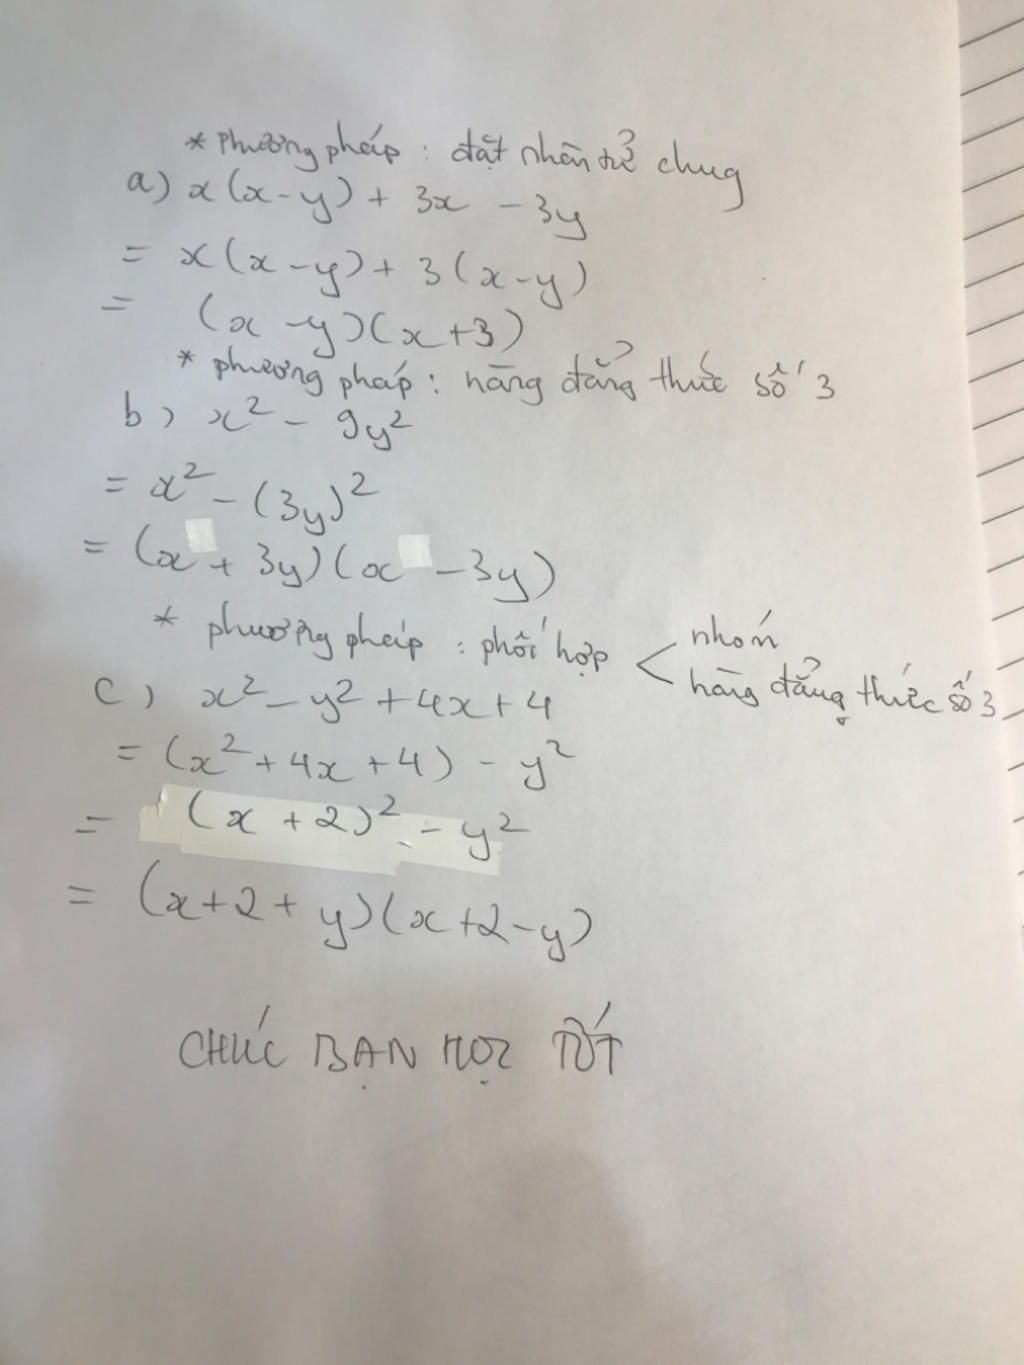 * phương pháp : đặt nhân tử chug
a) x(x-y) + 3x - 3y
= x(x-y) + 3(x-y)
= (x-y)(x+3)
* phương pháp : hằng đẳng thức số 3
b) x² - 9y²
= x² - (3y)²
= (x + 3y)(x - 3y)
* phương pháp : phối hợp < nhóm
hằng đẳng thức số 3
c) x² - y² + 4x + 4
= (x² + 4x + 4) - y²
= (x + 2)² - y²
= (x+2+y)(x+2-y)
CHÚC BẠN HỌC TỐT